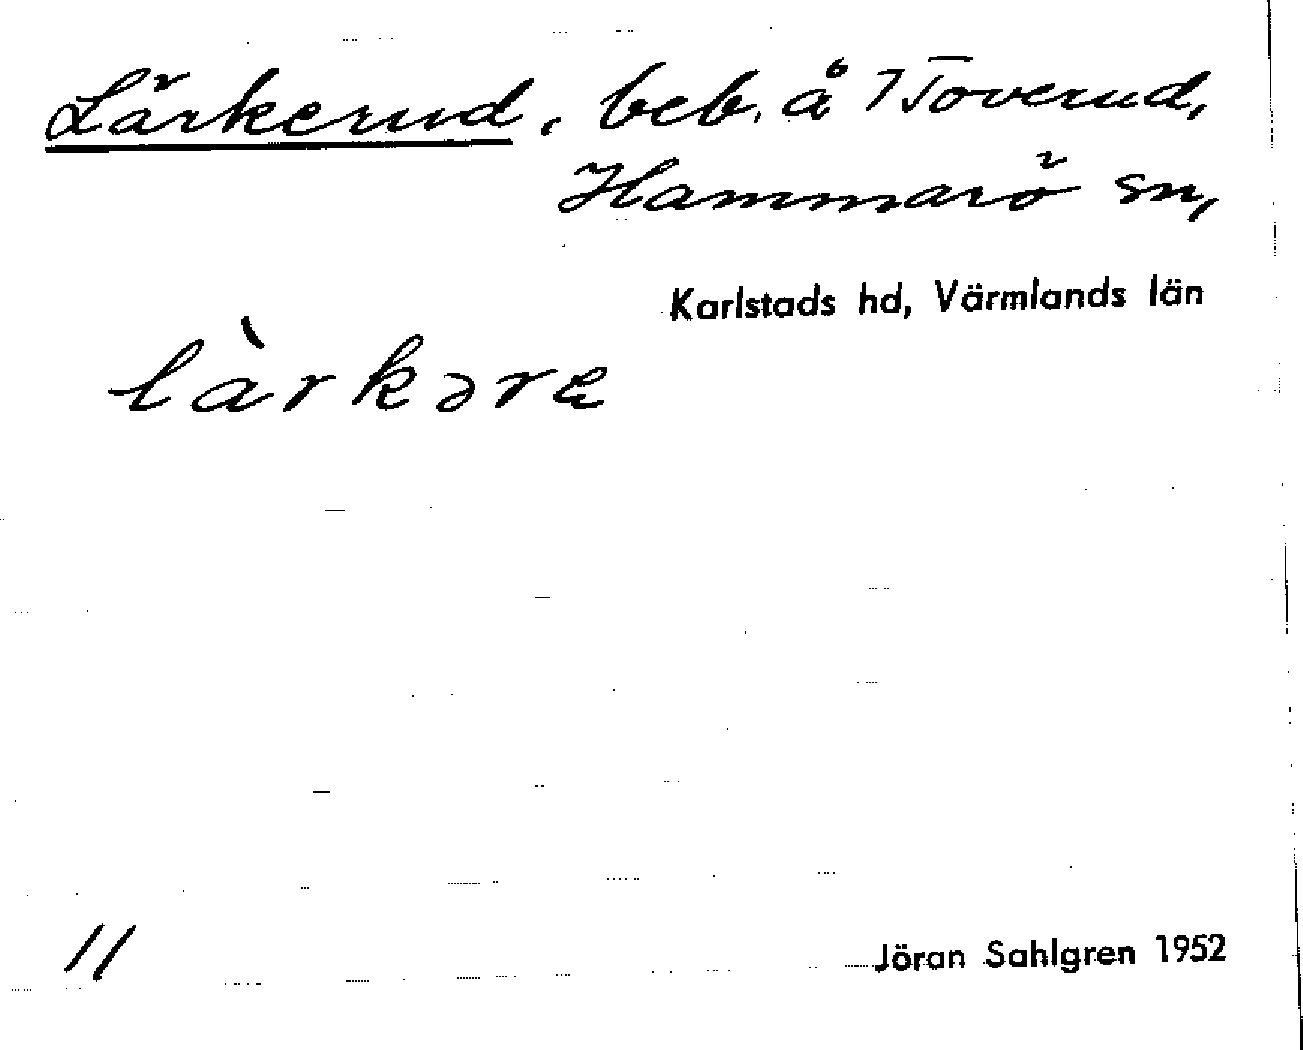 Lärkerud, beb. å Toverud,
Hammarö sn,
Karlstads hd, Värmlands län
làrkəre
11
Jöran Sahlgren 1952